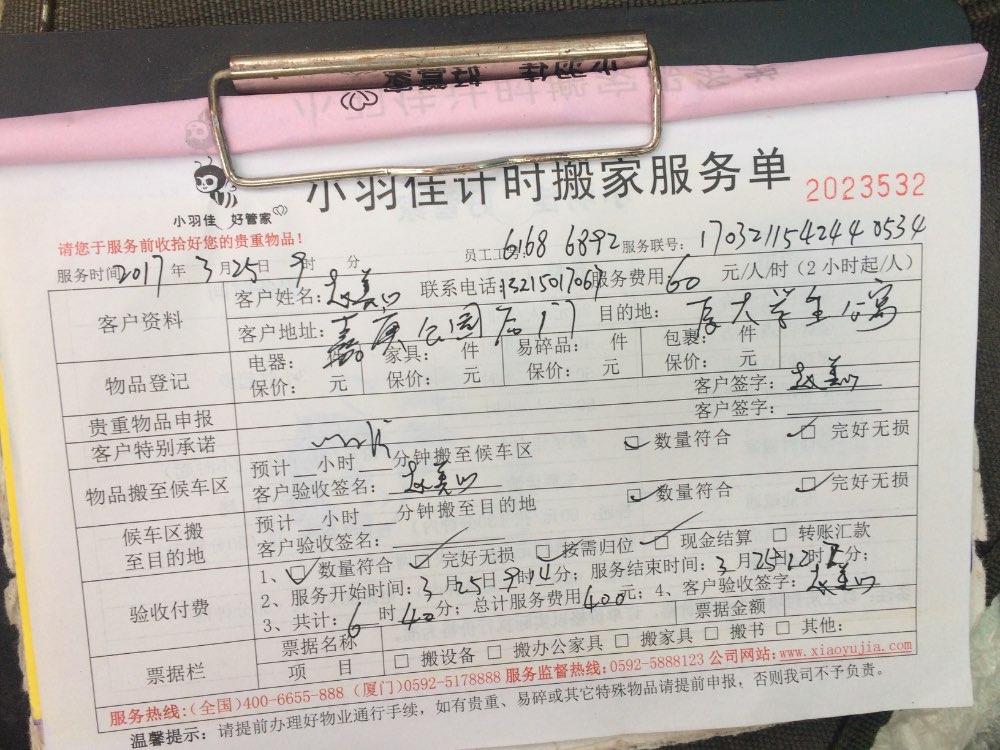 小羽佳 好管家
小羽佳计时搬家服务单
2023532
小羽佳 好管家
请您于服务前收拾好您的贵重物品！
员工工号: 6168 6892 服务联号: 17032115424440534
服务时间 2017 年 3 月 25 日 9 时 分
客户资料
客户姓名: 联系电话: 13215017067 服务费用 60 元/人/时（2小时起/人）
客户地址: 嘉庚公园后门 目的地: 厦大学生公寓
物品登记
电器: 件 家具: 件 易碎品: 件 包裹: 件
保价: 元 保价: 元 保价: 元 保价: 元
贵重物品申报 客户签字:
客户特别承诺 客户签字:
物品搬至候车区
预计 小时 分钟搬至候车区 数量符合 完好无损
客户验收签名:
候车区搬至目的地
预计 小时 分钟搬至目的地 数量符合 完好无损
客户验收签名:
验收付费
1、 数量符合 完好无损 按需归位 现金结算 转账汇款
2、服务开始时间: 3 月 25 日 9 时 14 分; 服务结束时间: 3 月 25 日 12 时 分;
3、共计: 6 时 40 分; 总计服务费用 400 元; 4、客户验收签字:
票据栏
票据名称 票据金额
项 目 □ 搬设备 □ 搬办公家具 □ 搬家具 □ 搬书 □ 其他:
服务热线:(全国)400-6655-888 (厦门)0592-5178888 服务监督热线:0592-5888123 公司网站:www.xiaoyujia.com
温馨提示: 请提前办理好物业通行手续，如有贵重、易碎或其它特殊物品请提前申报，否则我司不予负责。